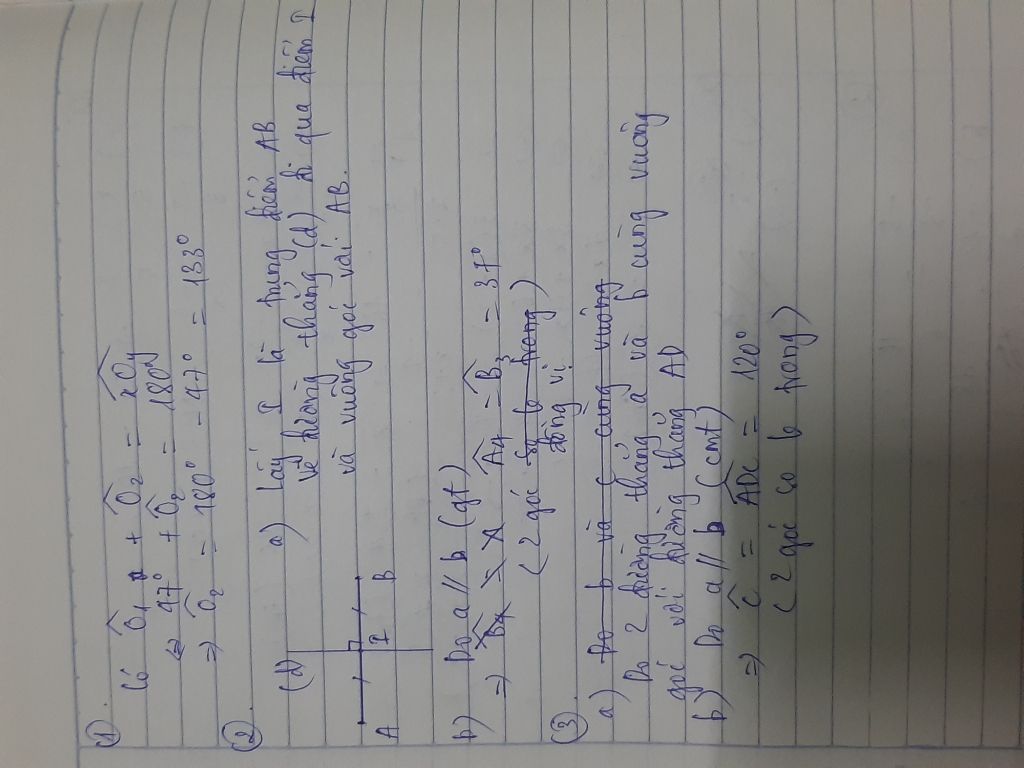 ①
Có Ô1 + Ô2 = xOy
⇔ 47° + Ô2 = 180°
⇒ Ô2 = 180° - 47° = 133°
②
a) Lấy I là trung điểm AB
vẽ đường thẳng (d) đi qua điểm I
và vuông góc với AB.
(d)
A I B
b) Do a // b (gt)
⇒ Â4 = B̂3 = 37°
(2 góc so le trong)
đồng vị
③
a) Do b và c cùng vuông
Do 2 đường thẳng a và b cùng vuông
góc với đường thẳng AD
b) Do a // b (cmt)
⇒ Ĉ = ADC = 120°
(2 góc so le trong)